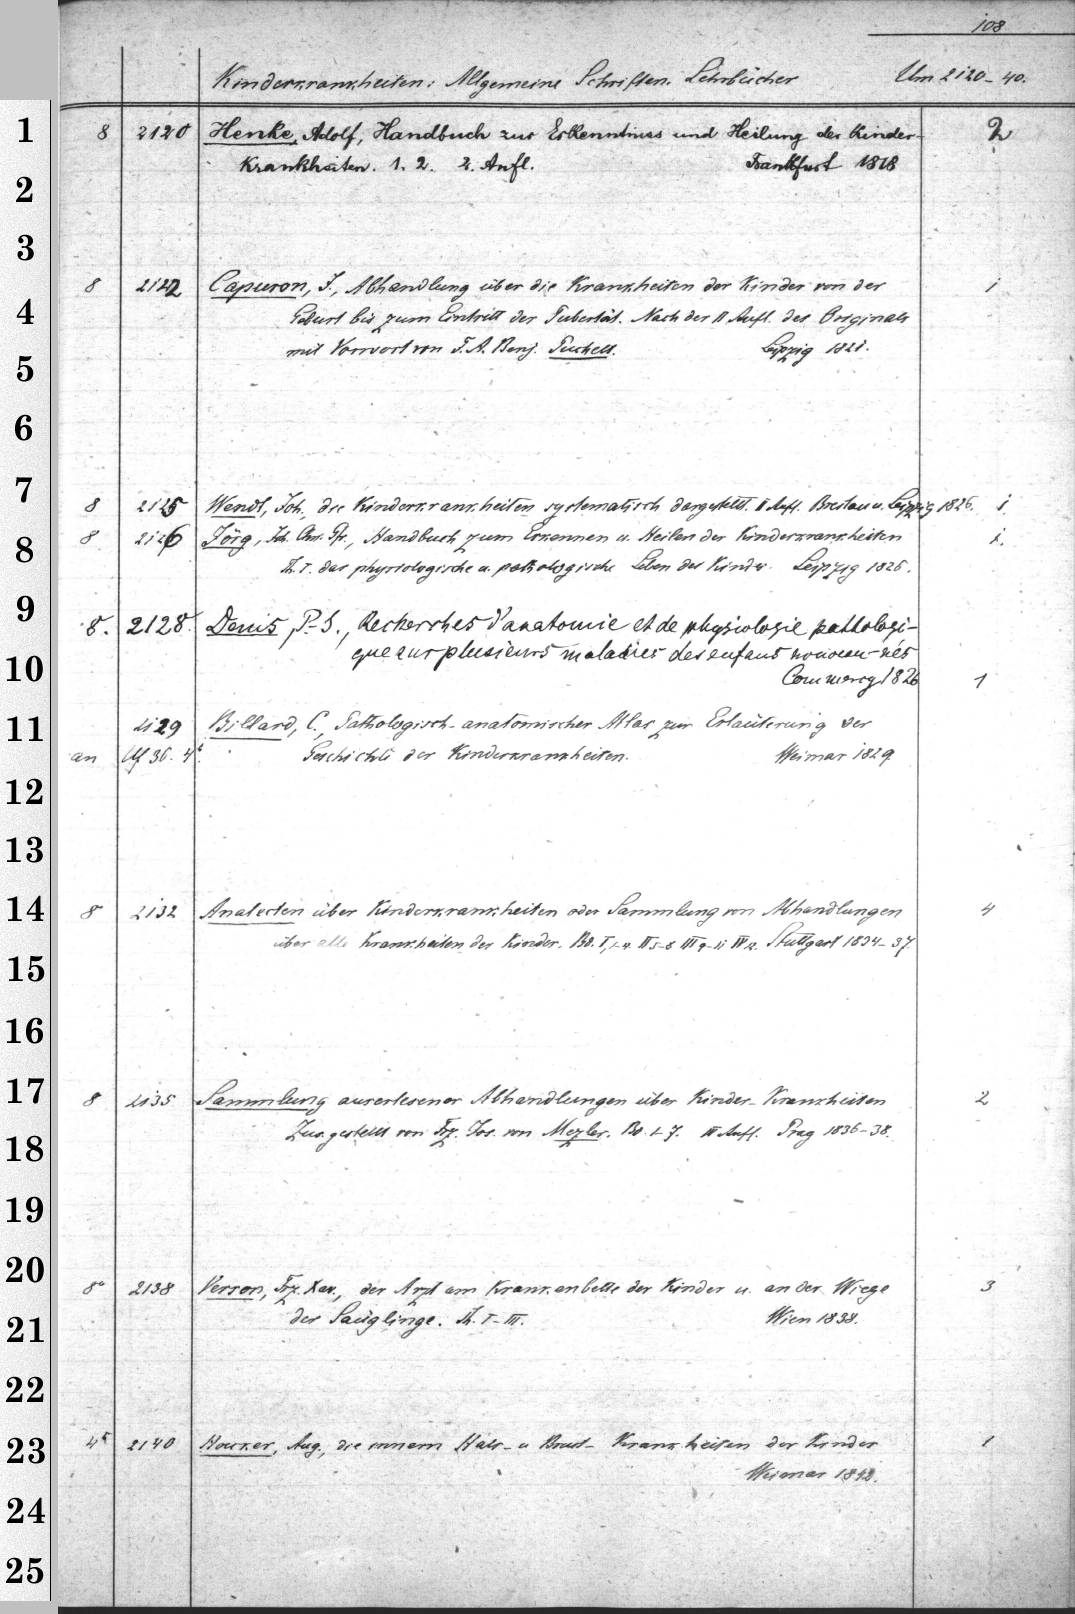 108
Kinderkrankheiten: Allgemeine Schriften. Lehrbücher Um 2120-40.
1
8 2120 Henke, Adolf, Handbuch zur Erkenntniss und Heilung der Kinder- 2
Krankheiten. 1. 2. 2. Aufl. Frankfurt 1818
2
3
8 2122 Capuron, J., Abhandlung über die Krankheiten der Kinder von der 1
4
Geburt bis zum Eintritt der Pubertät. Nach der II Aufl. des Originals
mit Vorwort von F. A. Benj. Puchelt. Leipzig 1821.
5
6
7
8 2125 Wendt, Joh., die Kinderkrankheiten systematisch dargestellt. II Aufl. Breslau u. Leipzig 1826. 1.
8
8 2126 Jörg, Joh. Chr. Gfr., Handbuch zum Erkennen u. Heilen der Kinderkrankheiten 1.
Th. I. das physiologische u. pathologische Leben des Kindes. Leipzig 1826.
9
8. 2128. Denis, P.-S., Recherches d'anatomie et de physiologie pathologi-
10
que sur plusieurs maladies des enfans nouveau-nés
Commercy 1826 1
11
2129 Billard, C., Pathologisch-anatomischer Atlas zur Erläuterung der
an Uf 36. 4t. Geschichte der Kinderkrankheiten. Weimar 1829
12
13
14
8 2132 Analecten über Kinderkrankheiten oder Sammlung von Abhandlungen 4
über alle Krankheiten der Kinder. Bd. I, 1-4. II 5-8 III 9-11 IV 12. Stuttgart 1834-37.
15
16
17
8 2135 Sammlung auserlesener Abhandlungen über Kinder-Krankheiten 2
Zusgestellt von Frz. Jos. von Mezler. Bd. 1-7. III Aufl. Prag 1836-38.
18
19
20
8° 2138 Verson, Frz. Xav., der Arzt am Krankenbette der Kinder u. an der Wiege 3
der Säuglinge. Th. I-III. Wien 1838.
21
22
23
4t 2140 Aug., die innern Hals- u Brust-Krankheiten der Kinder 1
Weimar 1842.
24
25